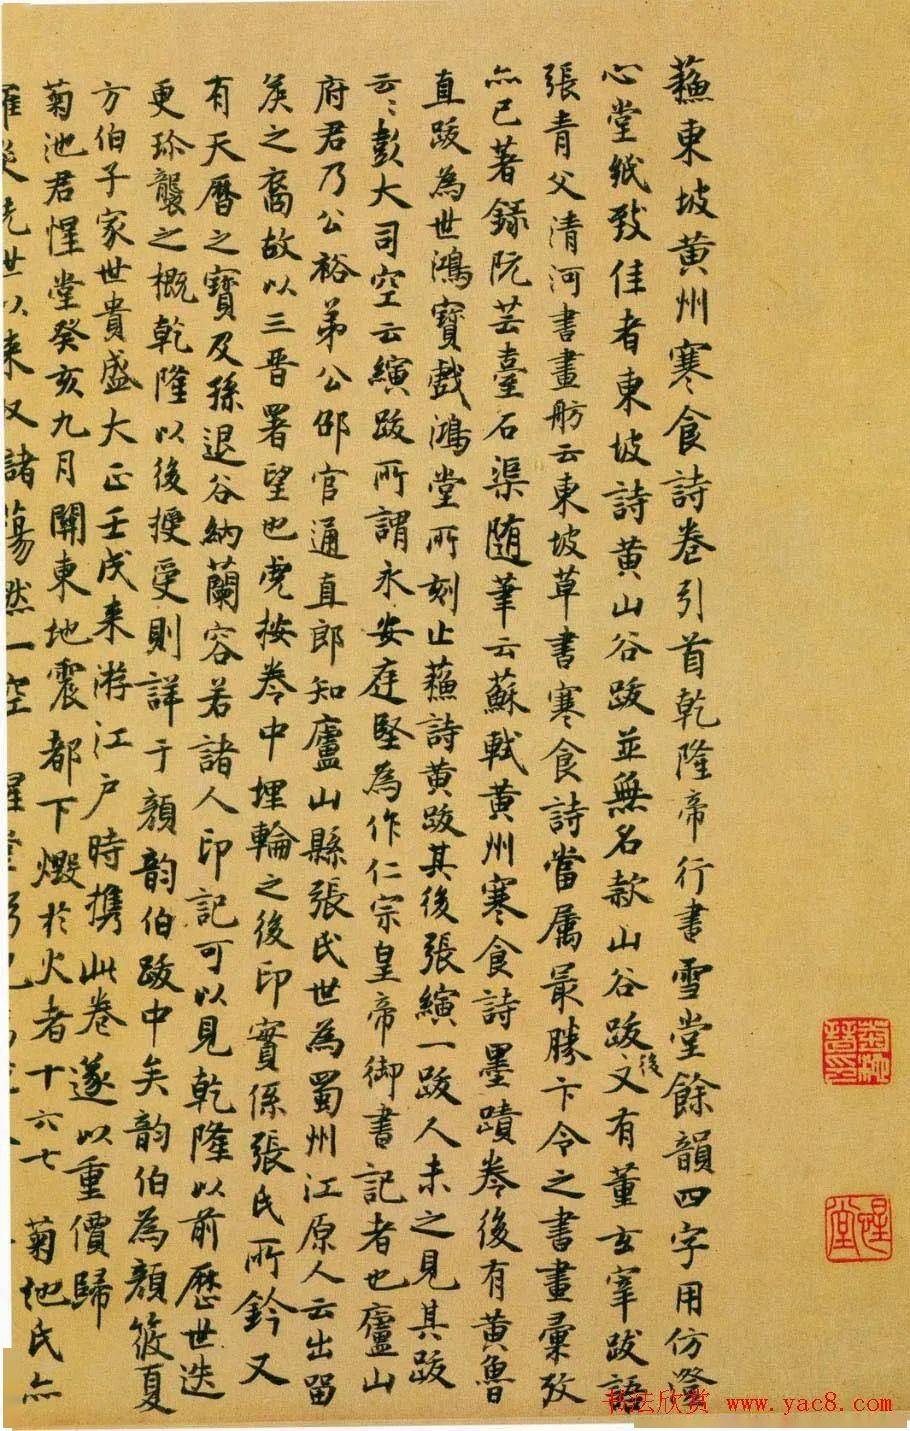 蘓東坡黄州寒食詩卷引首乾隆帝行書雪堂餘韻四字用仿澄
心堂紙致佳者東坡詩黄山谷跋並無名款山谷跋後又有董玄宰跋語
張青父清河書畫舫云東坡草書寒食詩當属最勝卞令之書畫彙攷
亦已著録阮芸臺石渠随筆云蘇軾黄州寒食詩墨蹟巻後有黄魯
直跋為世鴻寶戲鴻堂所刻止蘓詩黄跋其後張縯一跋人未之見其跋
云〻彭大司空云縯跋所謂永安庭堅為作仁宗皇帝御書記者也廬山
府君乃公裕弟公邵官通直郎知廬山縣張氏世為蜀州江原人云出留
矦之裔故以三晋署望也虎按卷中埋輪之後印實係張氏所鈐又
有天曆之寶及孫退谷納蘭容若諸人印記可以見乾隆以前歴世迭
更珎襲之概乾隆以後授受則詳于顔韵伯跋中矣韵伯為顔筱夏
方伯子家世貴盛大正壬戌来游江户時攜此卷遂以重價歸
菊池君惺堂癸亥九月關東地震都下燬於火者十六七菊池氏亦
罹災先世以来収諸蕩然一空惺堂
菊池晉印
惺堂
书法欣赏 www.yac8.com